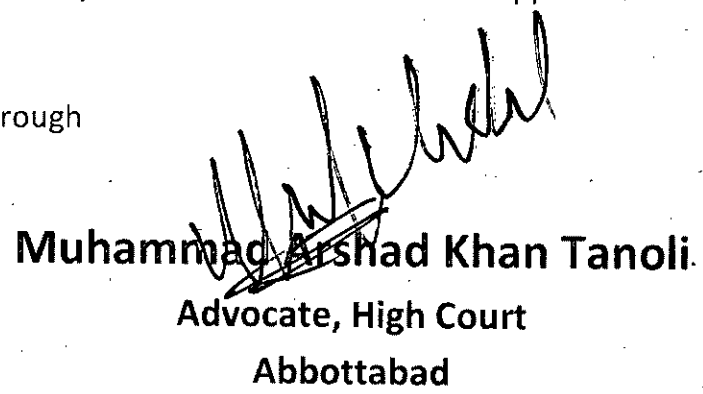 rough
Muhammad Arshad Khan Tanoli
Advocate, High Court
Abbottabad